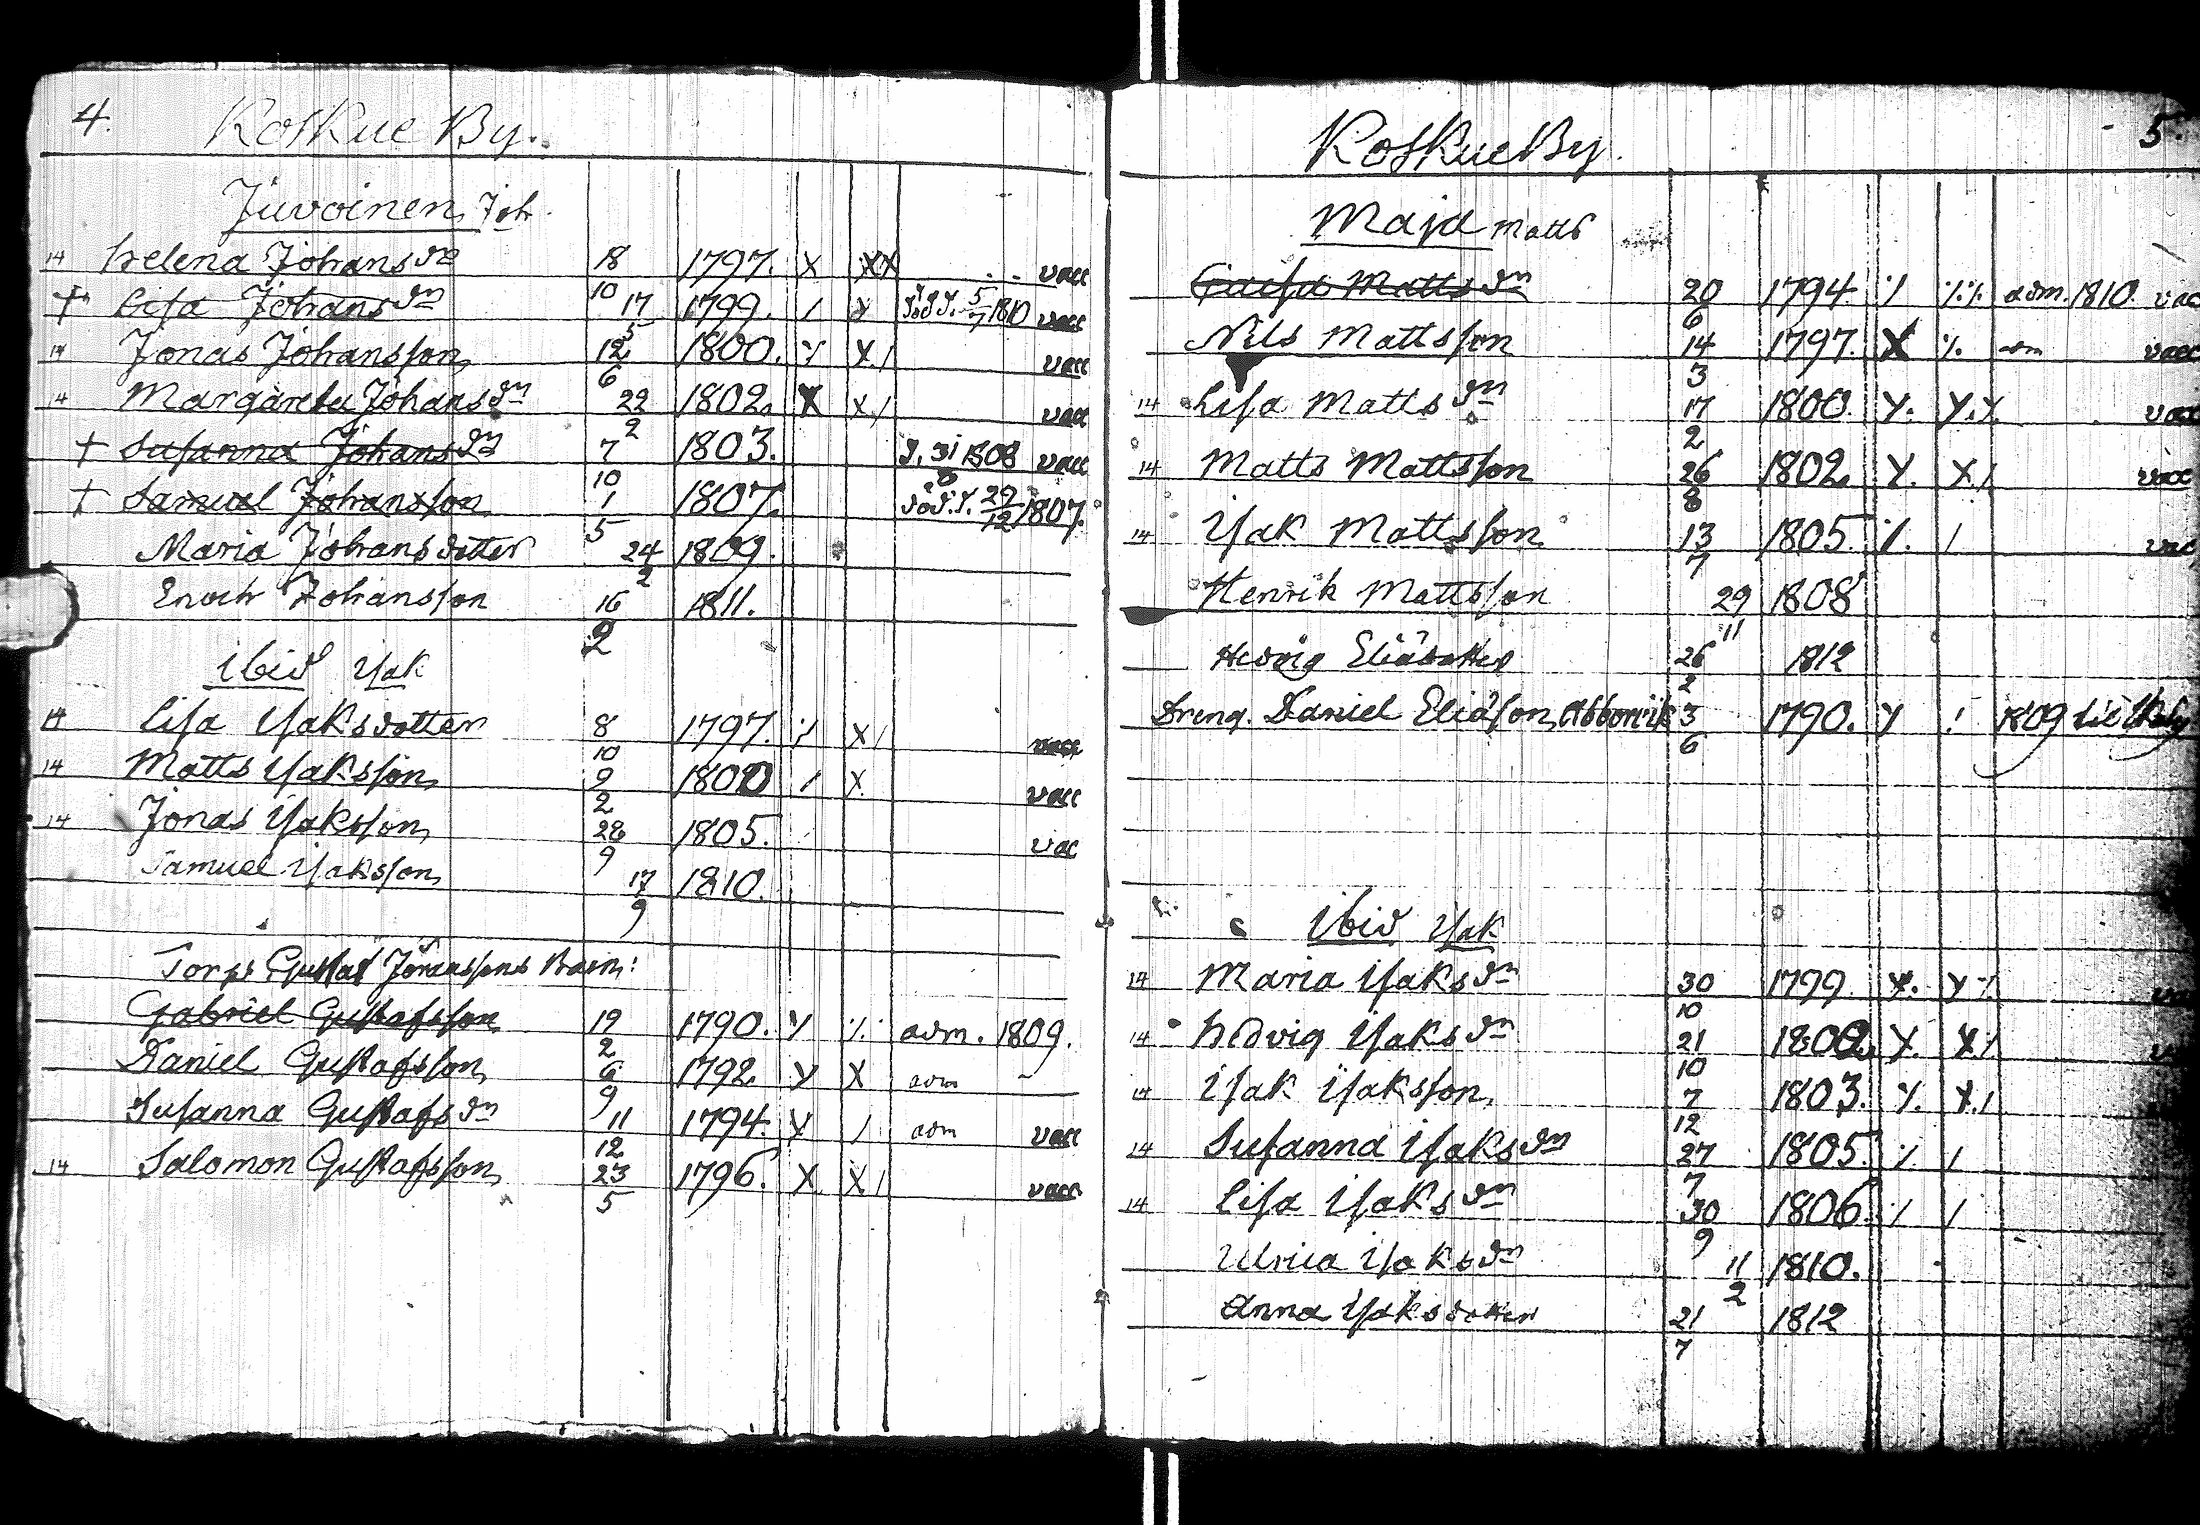 4.
Koskue By.
Juvoinen Joh.
14 Helena Johansdr 18/10 1797. X XX vacc
† Lisa Johansdn 17/5 1799. / X död d. 5/7 1810 vacc
14 Jonas Johansson 12/6 1800. Y X/ vacc
14 Margareta Johansdn 22/2 1802. X X/ vacc
† Susanna Johansdr 7/10 1803. d. 31/8 1808 vacc
† Samuel Johansson 1/5 1807. död. d. 29/12 1807.
Maria Johansdotter 24/2 1809.
Enoch Johansson 16/2 1811.
ibid Isak
14 Lisa Isaksdotter 8/10 1797. X/ vacc
14 Matts Isaksson 9/2 1800 / X vacc
14 Jonas Isaksson 28/9 1805. vac
Samuel Isaksson 17/9 1810.
Torp: Gustaf Johanssons Barn:
Gabriel Gustafsson 19/2 1790. Y ·/· adm. 1809.
Daniel Gustafsson 6/9 1792. Y X adm
Susanna Gustafsdn 11/12 1794. X / adm vacc
14 Salomon Gustafsson 23/5 1796. X X/ vacc
5.
Koskue By.
Maja Matts
Caisa Mattsdn 20/6 1794 ·/ ·/·/· adm. 1810. vac
Nils Mattsson 14/3 1797. X ·/· adm vacc
14 Lisa Mattsdn 17/2 1800. Y. Y.Y. vacc
14 Matts Mattsson 26/8 1802. Y. X/ vacc
14 Isak Mattsson 13/7 1805. ·/. / vac
Henrik Mattsson 29/11 1808
Hedvig Eliädotter 26/2 1812
Dreng. Daniel Eliäson 3/6 1790. Y ! 1809 til
Ibid Isak
14 Maria Isaksdn 30/10 1799. Y. Y/·
14 Hedvig Isaksdn 21/10 1800. X. X/
14 Isak Isaksson 7/12 1803. Y. X./
14 Susanna Isaksdn 27/7 1805. ·/. /
14 Lisa Isaksdn 30/9 1806 ·/ /
Ulrica Isaksdn 11/2 1810.
Anna Isaksdotter 21/7 1812